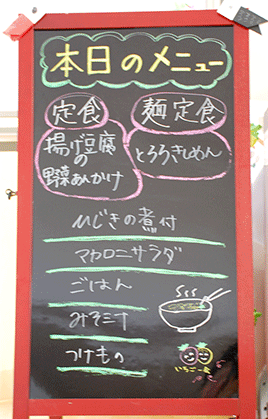 本日のメニュー
定食
揚げ豆腐
の
野菜あんかけ
麺定食
とろろきしめん
ひじきの煮付
マカロニサラダ
ごはん
みそ汁
つけもの